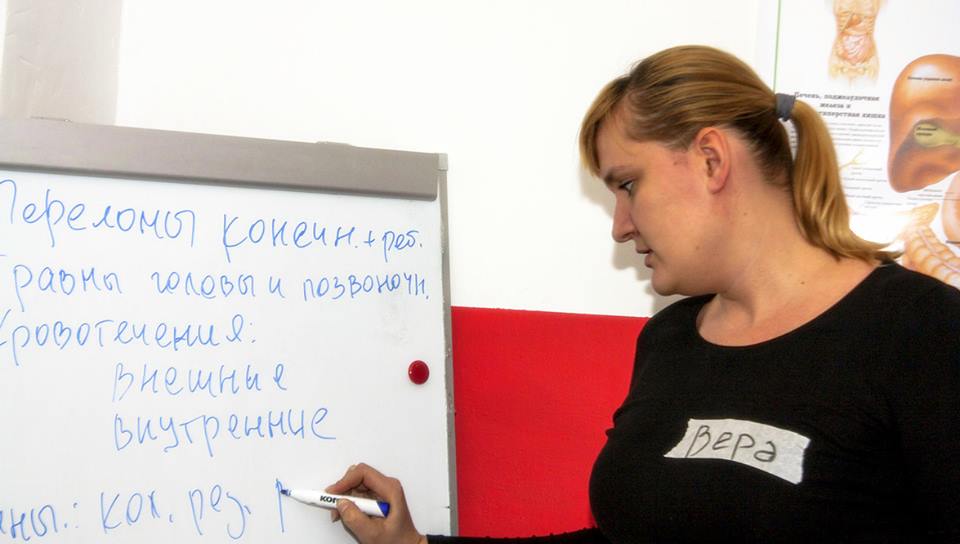 Переломы конечн. + реб.
Травмы головы и позвоночн.
Кровотечения:
внешные
внутренние
ны.: кол. рез. р
КОП
Вера
Печень, поджелудочная
железа и
перстная кишка